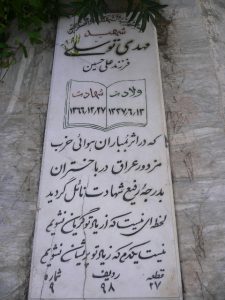 شهید
مهدی توسلی
فرزند علی حسین
ولادت شهادت
۱۳۳۷/۶/۱۳ ۱۳۶۶/۱۲/۲۷
که در اثر بمباران هوائی حزب
مزدور عراق در باختران
بدرجه رفیع شهادت نائل گردید
لحظه‌ای نیست که از یاد تو گریان نشویم
نیست یکدم که ز یاد تو پریشان نشویم
قطعه ردیف شماره
۲۷ ۹۸ ۹